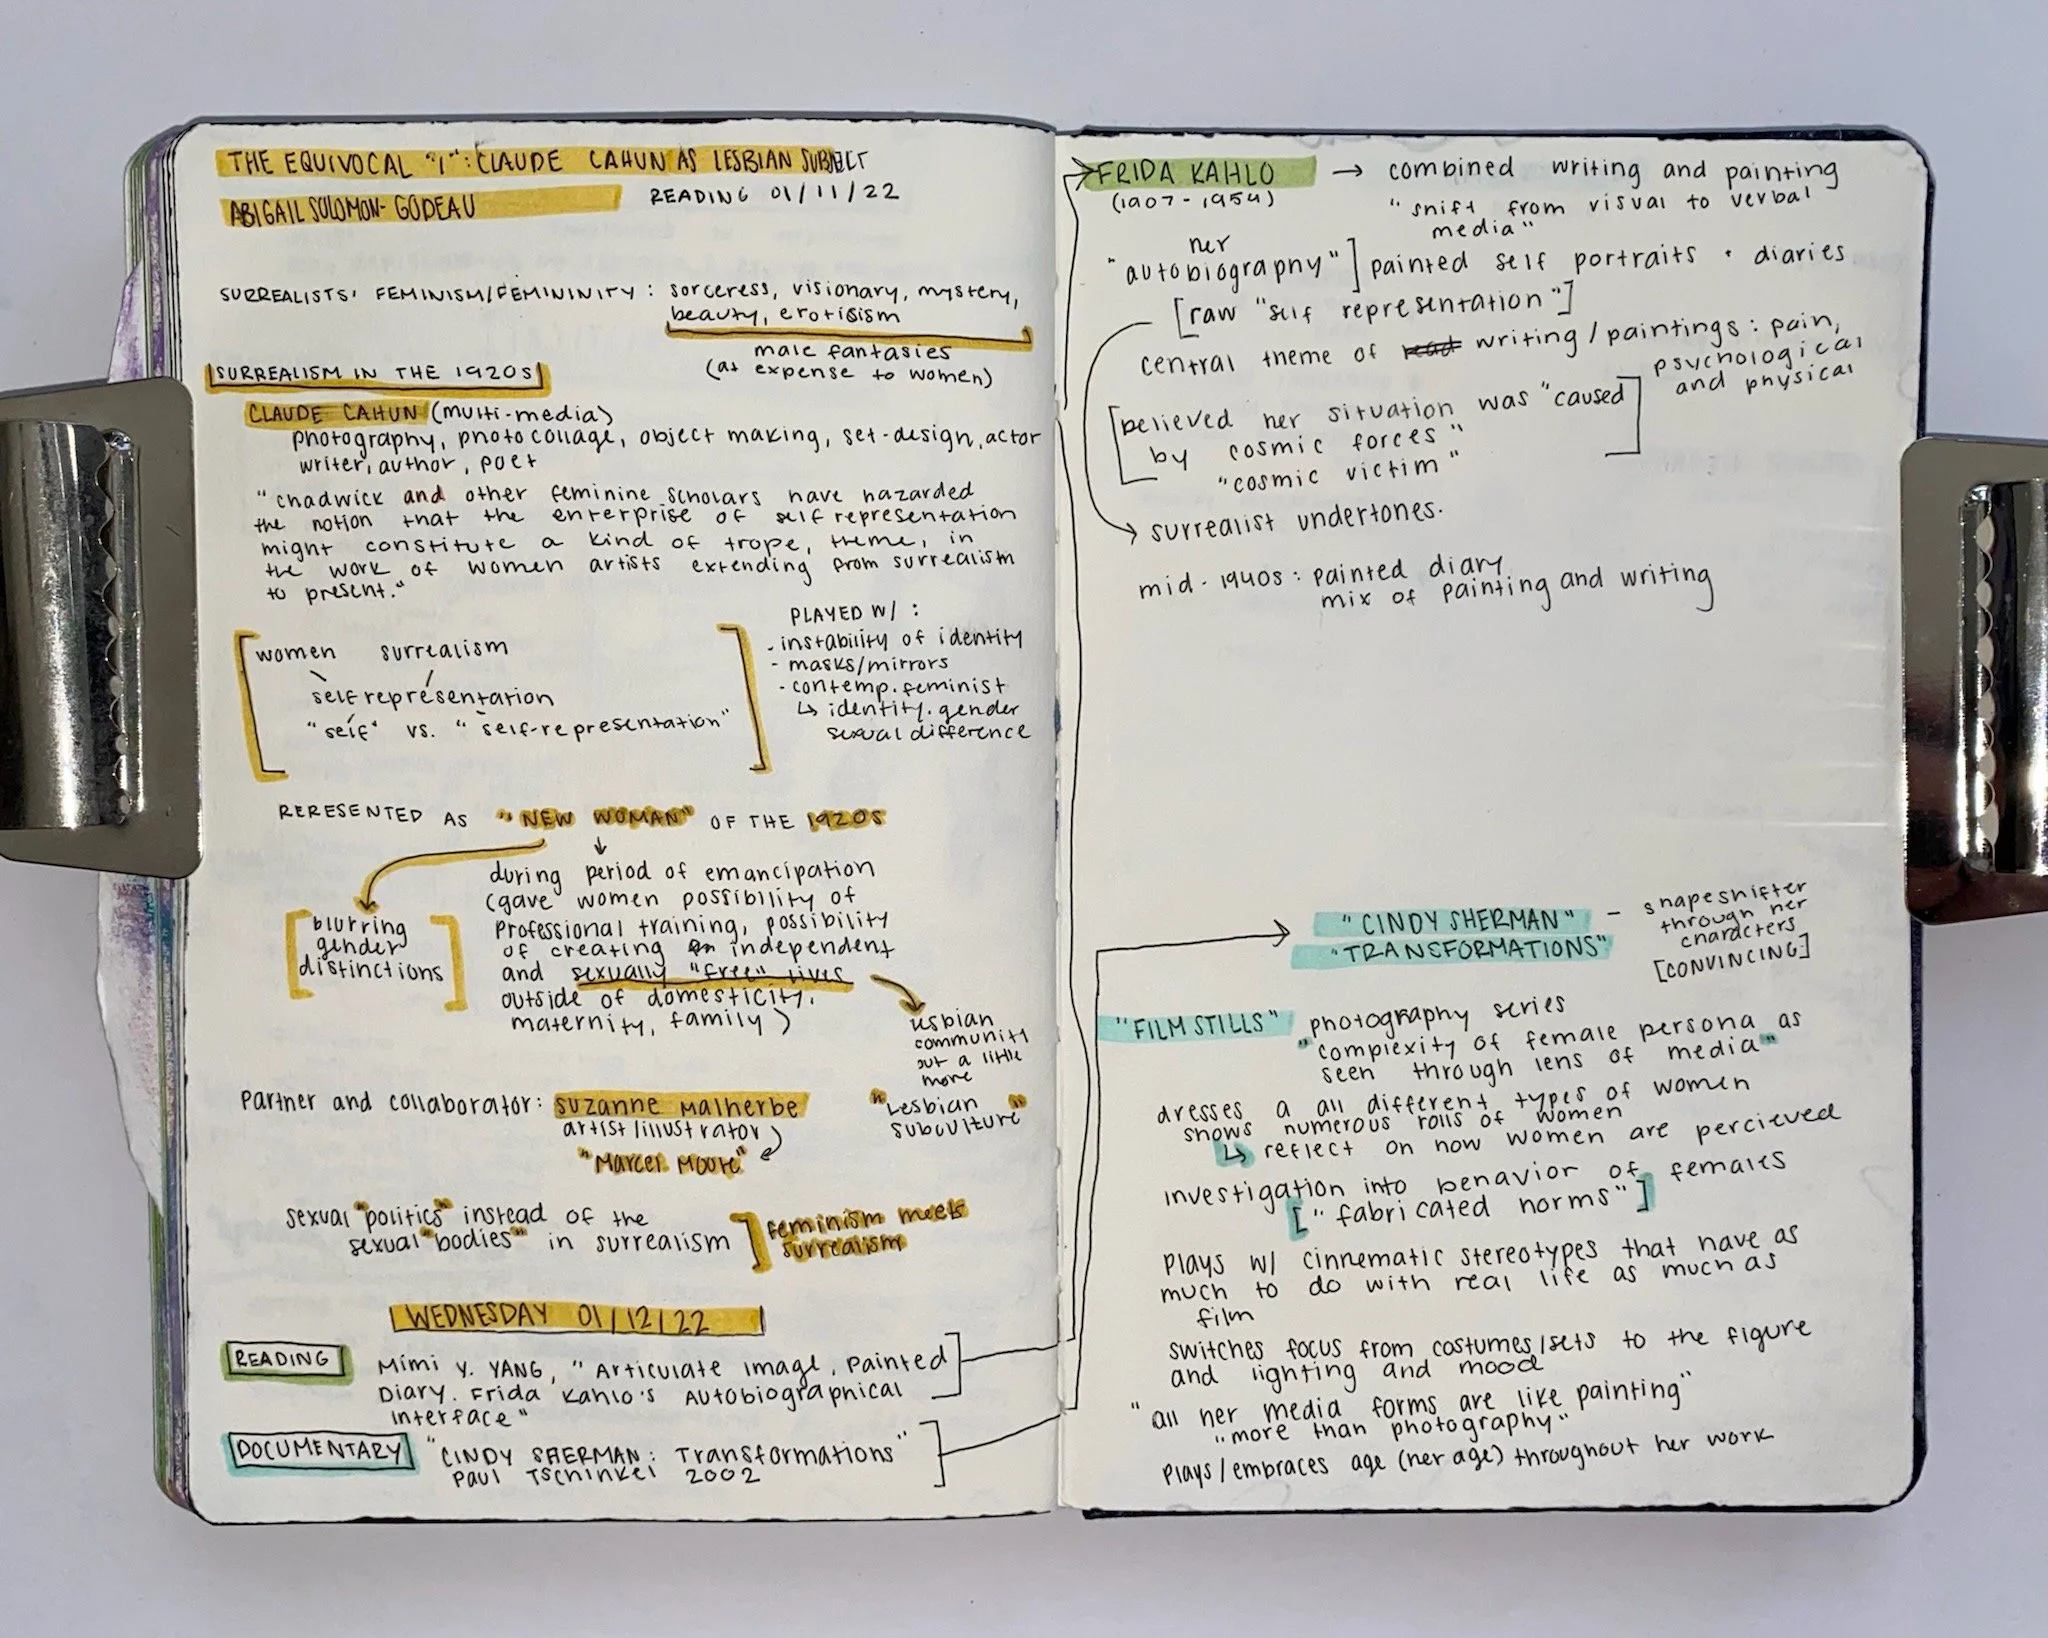 THE EQUIVOCAL "I": CLAUDE CAHUN AS LESBIAN SUBJECT
ABIGAIL SOLOMON-GODEAU
READING 01/11/22
SURREALISTS' FEMINISM/FEMININITY: sorceress, visionary, mystery,
beauty, eroticism
male fantasies
(at expense to women)
SURREALISM IN THE 1920s
CLAUDE CAHUN (multi-media)
photography, photocollage, object making, set-design, actor
writer, author, poet
"chadwick and other feminine scholars have hazarded
the notion that the enterprise of self representation
might constitute a kind of trope, theme, in
the work of women artists extending from surrealism
to present."
women surrealism
self representation
"self" vs. "self-representation"
PLAYED W/ :
- instability of identity
- masks/mirrors
- contemp. feminist
↳ identity. gender
sexual difference
RERESENTED AS "NEW WOMAN" OF THE 1920s
blurring
gender
distinctions
during period of emancipation
(gave women possibility of
professional training, possibility
of creating independent
and sexually "free" lives
outside of domesticity,
maternity, family)
lesbian
community
out a little
more
"Lesbian
subculture"
Partner and collaborator: Suzanne Malherbe
artist/illustrator
"Marcel Moore"
sexual "politics" instead of the
sexual "bodies" in surrealism
feminism meets
surrealism
WEDNESDAY 01/12/22
READING
Mimi Y. YANG, "Articulate Image, Painted
Diary. Frida Kahlo's Autobiographical
Interface"
DOCUMENTARY
"CINDY SHERMAN: Transformations"
Paul Tschinkel 2002
FRIDA KAHLO → combined writing and painting
(1907-1954)
"shift from visual to verbal
media"
her
"autobiography"] painted self portraits + diaries
[raw "self representation"]
central theme of read writing/paintings: pain,
psychological
and physical
[believed her situation was "caused
by cosmic forces"
"cosmic victim"
surrealist undertones.
mid-1940s: painted diary
mix of painting and writing
"CINDY SHERMAN"
"TRANSFORMATIONS"
- shapeshifter
through her
characters
[CONVINCING]
"FILM STILLS" photography series
"complexity of female persona as
seen through lens of media"
dresses a all different types of women
shows numerous rolls of women
↳ reflect on how women are percieved
investigation into behavior of females
["fabricated norms"]
plays w/ cinnematic stereotypes that have as
much to do with real life as much as
film
switches focus from costumes/sets to the figure
and lighting and mood
"all her media forms are like painting"
"more than photography"
plays/embraces age (her age) throughout her work